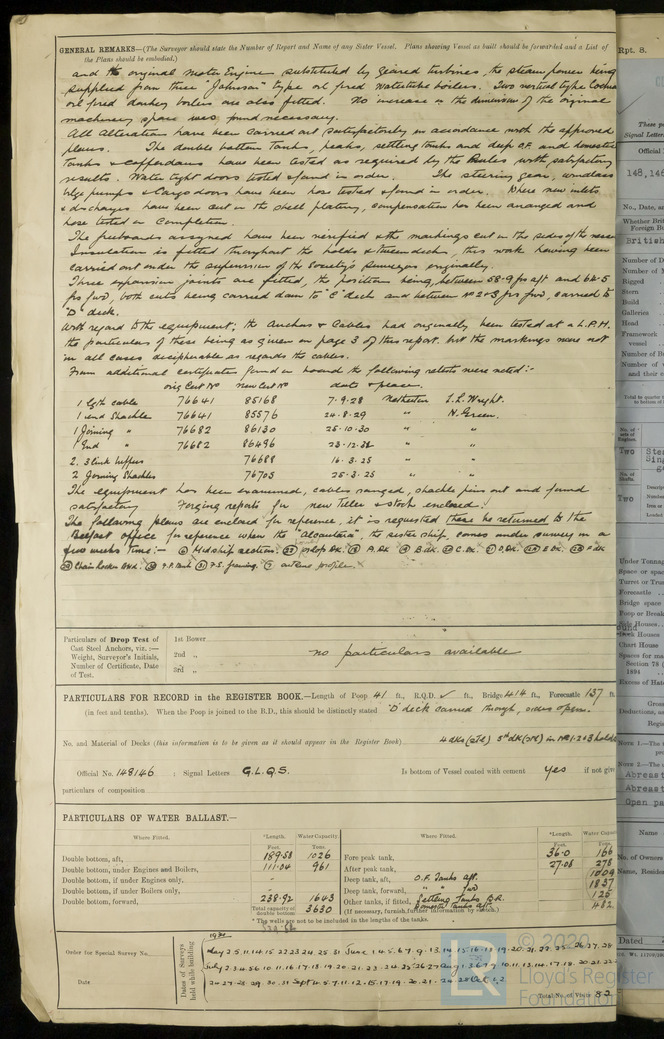 GENERAL REMARKS—(The Surveyor should state the Number of Report and Name of any Sister Vessel. Plans showing Vessel as built should be forwarded and a List of
the Plans should be embodied.)
and the original motor Engine substituted by geared turbines, the steam power being
supplied from three "Johnson" type oil fired Watertube boilers. Two vertical type Cochran
oil fired donkey boilers are also fitted. No increase in the dimensions of the original
machinery space was found necessary.
All Alterations have been carried out satisfactorily in accordance with the approved
plans. The double bottom Tanks, peaks, settling tanks and deep O.F. and domestic
tanks & cofferdams have been tested as required by the Rules with satisfactory
results. Water tight doors tested & found in order. The steering gear, windlass
bilge pumps & Cargo doors have been hose tested & found in order. Where new inlets
& discharges have been cut in the shell plating, compensation has been arranged and
hose tested on Completion.
The freeboards assigned have been verified & the markings cut in the sides of the vessel
Insulation is fitted throughout the holds & tween decks, this work having been
carried out under the supervision of the Society's Surveyors originally.
Three expansion joints are fitted, the positions being between 58-9 frs aft and 64-5
frs fwd, both cuts being carried down to "C" deck and between Nº 2&3 frs fwd, carried to
"D" deck.
With regard to the equipment; the Anchors & Cables had originally been tested at a L.P.H.
the particulars of these being as given on page 3 of this report, but the markings were not
in all cases decipherable as regards the cables.
From additional certificates found on board the following retests were noted:-
orig Cert Nº new Cert Nº date & place.
1 lgth cable 76641 85168 7-9-28 Netherton L.L. Wright.
1 end Shackle 76641 85576 24-8-29 " N. Green.
1 Joining " 76682 86130 25-10-30 " "
1 End " 76682 86496 23-12-32 " "
2. 3 link 76688 16-3-25 " "
2 Joining Shackles 76705 25-3-25 " "
The equipment has been examined, cables ranged, shackle pins out and found
satisfactory Forging reports for new tiller & stock enclosed.
The following plans are enclosed for reference, it is requested these be returned to the
Belfast office for reference when the "Alcantara", the sister ship, comes under survey in a
few weeks time:- Midship section. Orlop Dk. A. Dk. B. dk. C. Dk. D. Dk. E Dk. F dk
Chain Locker Bhd. F.P. Bhd. F.S. framing. outline profile.
Particulars of Drop Test of
Cast Steel Anchors, viz. :—
Weight, Surveyor's Initials,
Number of Certificate, Date
of Test.
1st Bower
2nd "
3rd "
no particulars available
PARTICULARS FOR RECORD in the REGISTER BOOK.—Length of Poop 41 ft., R.Q.D. ✓ ft., Bridge 414 ft., Forecastle 137 ft.
(in feet and tenths). When the Poop is joined to the B.D., this should be distinctly stated 'D' deck carried through, sides open.
No. and Material of Decks (this information is to be given as it should appear in the Register Book) 4 dks (stl) 5th dk (stl) in Nº 1.2&3 holds
Official No. 148146 ; Signal Letters G.L.Q.S. Is bottom of Vessel coated with cement yes if not give
particulars of composition
PARTICULARS OF WATER BALLAST.—
Where Fitted. *Length. Water Capacity Where Fitted. *Length. Water Capacity
Feet. Tons. Feet. Tons.
Double bottom, aft, 189.58 1026 Fore peak tank, 36.0 166
Double bottom, under Engines and Boilers, 111.04 961 After peak tank, 27.08 278
Double bottom, if under Engines only, - Deep tank, aft, O.F. Tanks aft. 1009
Double bottom, if under Boilers only, - Deep tank, forward, " " fwd 1837
Double bottom, forward, 238.92 1643 Other tanks, if fitted, Settling Tanks B.R. 126
Total capacity of double bottom 3630 (If necessary, furnish further information by sketch.) Domestic tanks aft. 482
* The wells are not to be included in the lengths of the tanks.
Order for Special Survey No.
Date
Dates of Surveys held while building
Total No. of Visits 82
Rpt. 8.
These pa
Signal Letter
Official
148,146
No., Date, a
Whether Brit
Foreign B
British
Number of D
Number of M
Rigged
Stern
Build
Galleries
Head
Framework
vessel
Number of B
Number of
and their c
Two
Two
Under Tonnag
Space or spac
Turret or Tru
Forecastle
Bridge space
Poop or Break
Side Houses
Deck Houses
Chart House
Spaces for ma
Section 78 (
1894
Excess of Hatc
Gross
Deductions, as
Regist
Abreast
Abreast
Open pa
Name
No. of Owners
Name, Resident
Dated
LR
© 2020
Lloyd's Register
Foundation